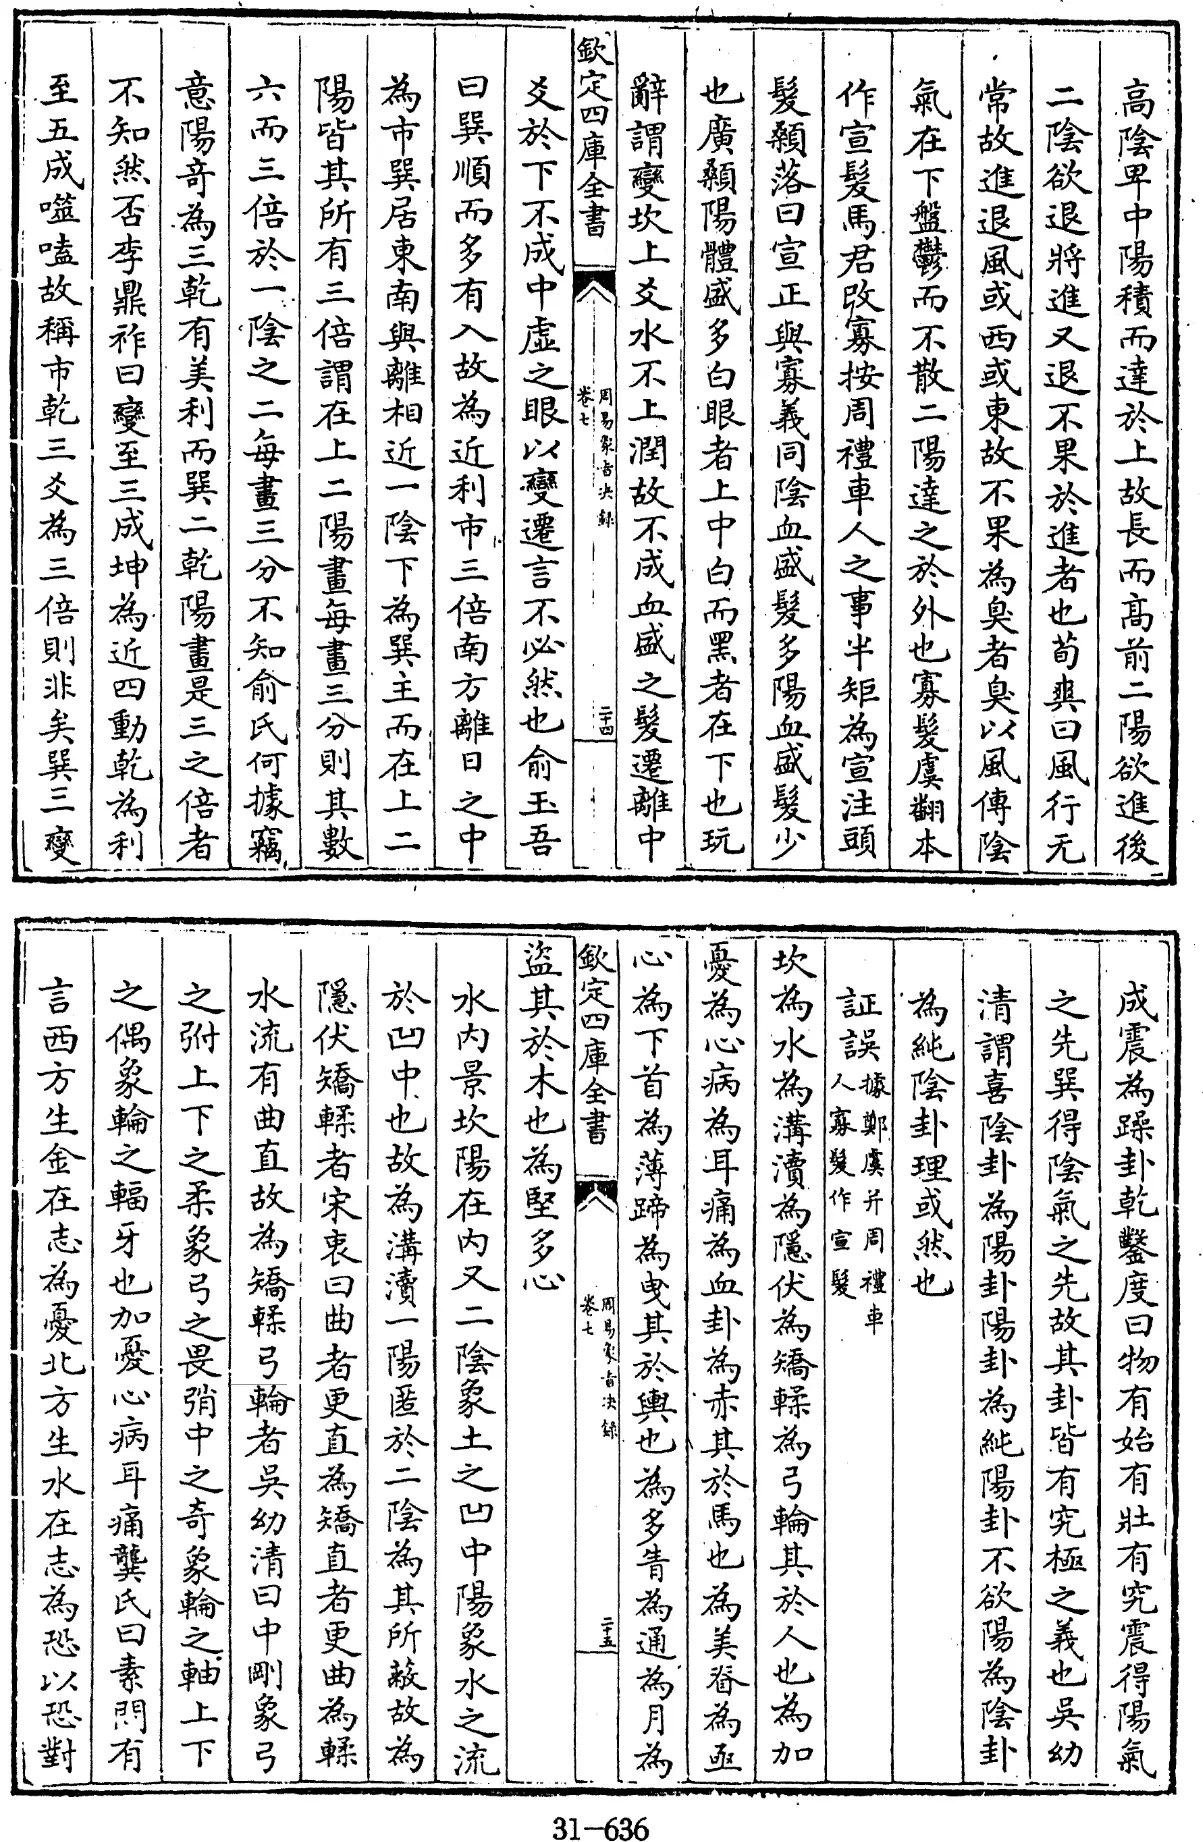 高陰卑中陽積而達於上故長而高前二陽欲進後
二陰欲退將進又退不果於進者也荀爽曰風行无
常故進退風或西或東故不果為臭者臭以風傳陰
氣在下盤鬱而不散二陽達之於外也寡髮虞翻本
作宣髮馬君改寡按周禮車人之事半矩為宣注頭
髮顥落曰宣正與寡義同陰血盛髮多陽血盛髮少
也廣顙陽體盛多白眼者上中白而黑者在下也玩
辭謂變坎上爻水不上潤故不成血盛之髮遷離中
欽定四庫全書
周易象旨決録
卷七
二十四
爻於下不成中虛之眼以變遷言不必然也俞玉吾
曰巽順而多有入故為近利市三倍南方離日之中
為市巽居東南與離相近一陰下為巽主而在上二
陽皆其所有三倍謂在上二陽畫每畫三分則其數
六而三倍於一陰之二每畫三分不知俞氏何據竊
意陽竒為三乾有美利而巽二乾陽畫是三之倍者
不知然否李鼎祚曰變至三成坤為近四動乾為利
至五成噬嗑故稱市乾三爻為三倍則非矣巽三變
成震為躁卦乾鑿度曰物有始有壯有究震得陽氣
之先巽得陰氣之先故其卦皆有究極之義也吳幼
清謂喜陰卦為陽卦陽卦為純陽卦不欲陽為陰卦
為純陰卦理或然也
証誤據鄭虞并周禮車
人寡髮作宣髮
坎為水為溝瀆為隱伏為矯輮為弓輪其於人也為加
憂為心病為耳痛為血卦為赤其於馬也為美脊為亟
心為下首為薄蹄為曳其於輿也為多眚為通為月為
欽定四庫全書
周易象旨決録
卷七
二十五
盜其於木也為堅多心
水内景坎陽在内又二陰象土之凹中陽象水之流
於凹中也故為溝瀆一陽匿於二陰為其所蔽故為
隱伏矯輮者宋衷曰曲者更直為矯直者更曲為輮
水流有曲直故為矯輮弓輪者吳幼清曰中剛象弓
之弣上下之柔象弓之畏弰中之奇象輪之軸上下
之偶象輪之輻牙也加憂心病耳痛龔氏曰素問有
言西方生金在志為憂北方生水在志為恐以恐對
31-636